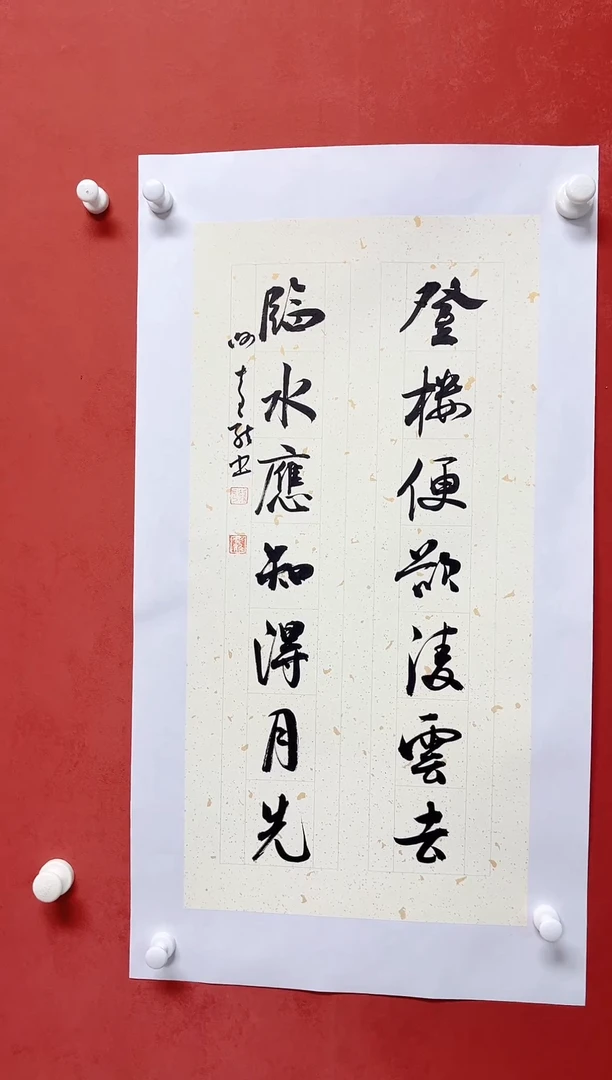 登樓便欲淩雲去
臨水應知得月先